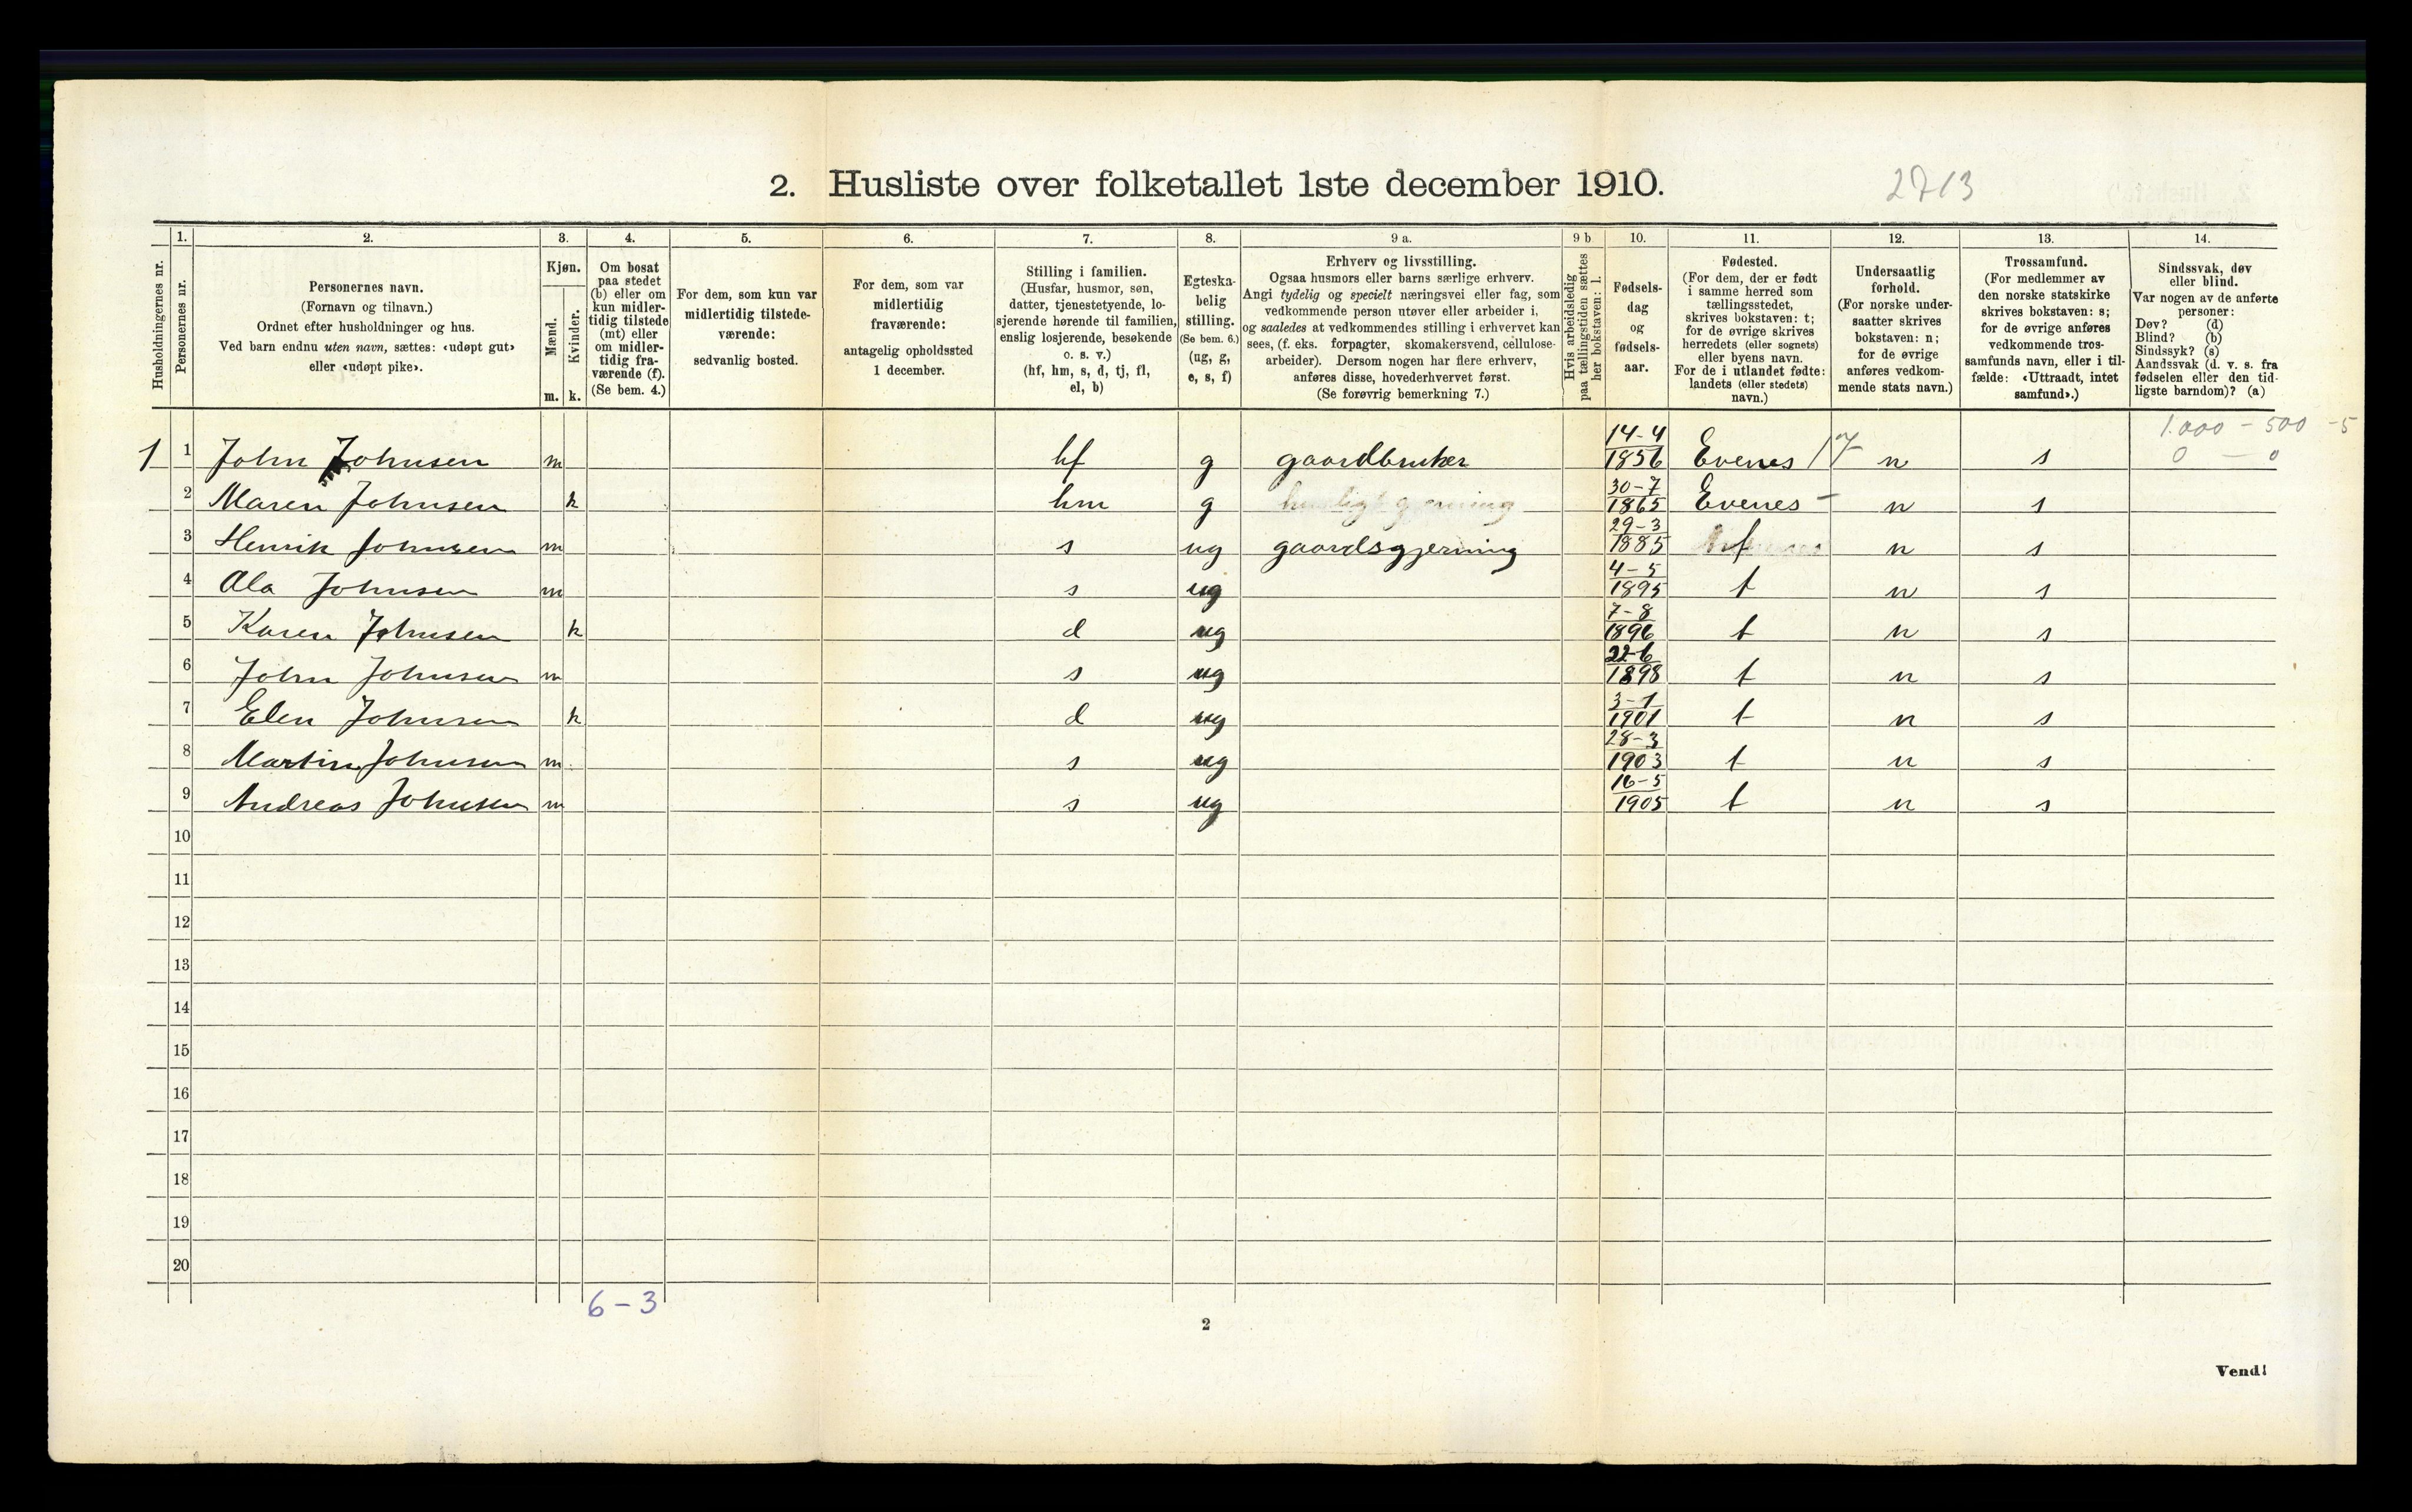 2. Husliste over folketallet 1ste december 1910.
2713
Husholdningernes nr.
1.
Personernes nr.
2.
Personernes navn.
(Fornavn og tilnavn.)
Ordnet efter husholdninger og hus.
Ved barn endnu uten navn, sættes: «udøpt gut»
eller «udøpt pike».
3.
Kjøn.
Mænd.
Kvinder.
m. k.
4.
Om bosat
paa stedet
(b) eller om
kun midler-
tidig tilstede
(mt) eller
om midler-
tidig fra-
værende (f).
(Se bem. 4.)
5.
For dem, som kun var
midlertidig tilstede-
værende:
sedvanlig bosted.
6.
For dem, som var
midlertidig
fraværende:
antagelig opholdssted
1 december.
7.
Stilling i familien.
(Husfar, husmor, søn,
datter, tjenestetyende, lo-
sjerende hørende til familien,
enslig losjerende, besøkende
o. s. v.)
(hf, hm, s, d, tj, fl,
el, b)
8.
Egteska-
belig
stilling.
(Se bem. 6.)
(ug, g,
e, s, f)
9 a.
Erhverv og livsstilling.
Ogsaa husmors eller barns særlige erhverv.
Angi tydelig og specielt næringsvei eller fag, som
vedkommende person utøver eller arbeider i,
og saaledes at vedkommendes stilling i erhvervet kan
sees, (f. eks. forpagter, skomakersvend, cellulose-
arbeider). Dersom nogen har flere erhverv,
anføres disse, hovederhvervet først.
(Se forøvrig bemerkning 7.)
9 b
Hvis arbeidsledig
paa tællingstiden sættes
her bokstaven: l.
10.
Fødsels-
dag
og
fødsels-
aar.
11.
Fødested.
(For dem, der er født
i samme herred som
tællingsstedet,
skrives bokstaven: t;
for de øvrige skrives
herredets (eller sognets)
eller byens navn.
For de i utlandet fødte:
landets (eller stedets)
navn.)
12.
Undersaatlig
forhold.
(For norske under-
saatter skrives
bokstaven: n;
for de øvrige
anføres vedkom-
mende stats navn.)
13.
Trossamfund.
(For medlemmer av
den norske statskirke
skrives bokstaven: s;
for de øvrige anføres
vedkommende tros-
samfunds navn, eller i til-
fælde: «Uttraadt, intet
samfund».)
14.
Sindssvak, døv
eller blind.
Var nogen av de anførte
personer:
Døv? (d)
Blind? (b)
Sindssyk? (s)
Aandssvak (d. v. s. fra
fødselen eller den tid-
ligste barndom)? (a)
1.000 - 500 - 5
0 - 0
1 1 John Johnsen m hf g gaardbruker 14-4 1856 Evenes 17 n s
2 Maren Johnsen k hm g huslig gjerning 30-7 1865 Evenes - n s
3 Henrik Johnsen m s ug gaardsgjerning 29-3 1885 t n s
4 Ola Johnsen m s ug 4-5 1895 t n s
5 Karen Johnsen k d ug 7-8 1896 t n s
6 John Johnsen m s ug 22-6 1898 t n s
7 Elen Johnsen k d ug 3-1 1901 t n s
8 Martin Johnsen m s ug 28-3 1903 t n s
9 Andreas Johnsen m s ug 16-5 1905 t n s
10
11
12
13
14
15
16
17
18
19
20
6-3
2
Vend!